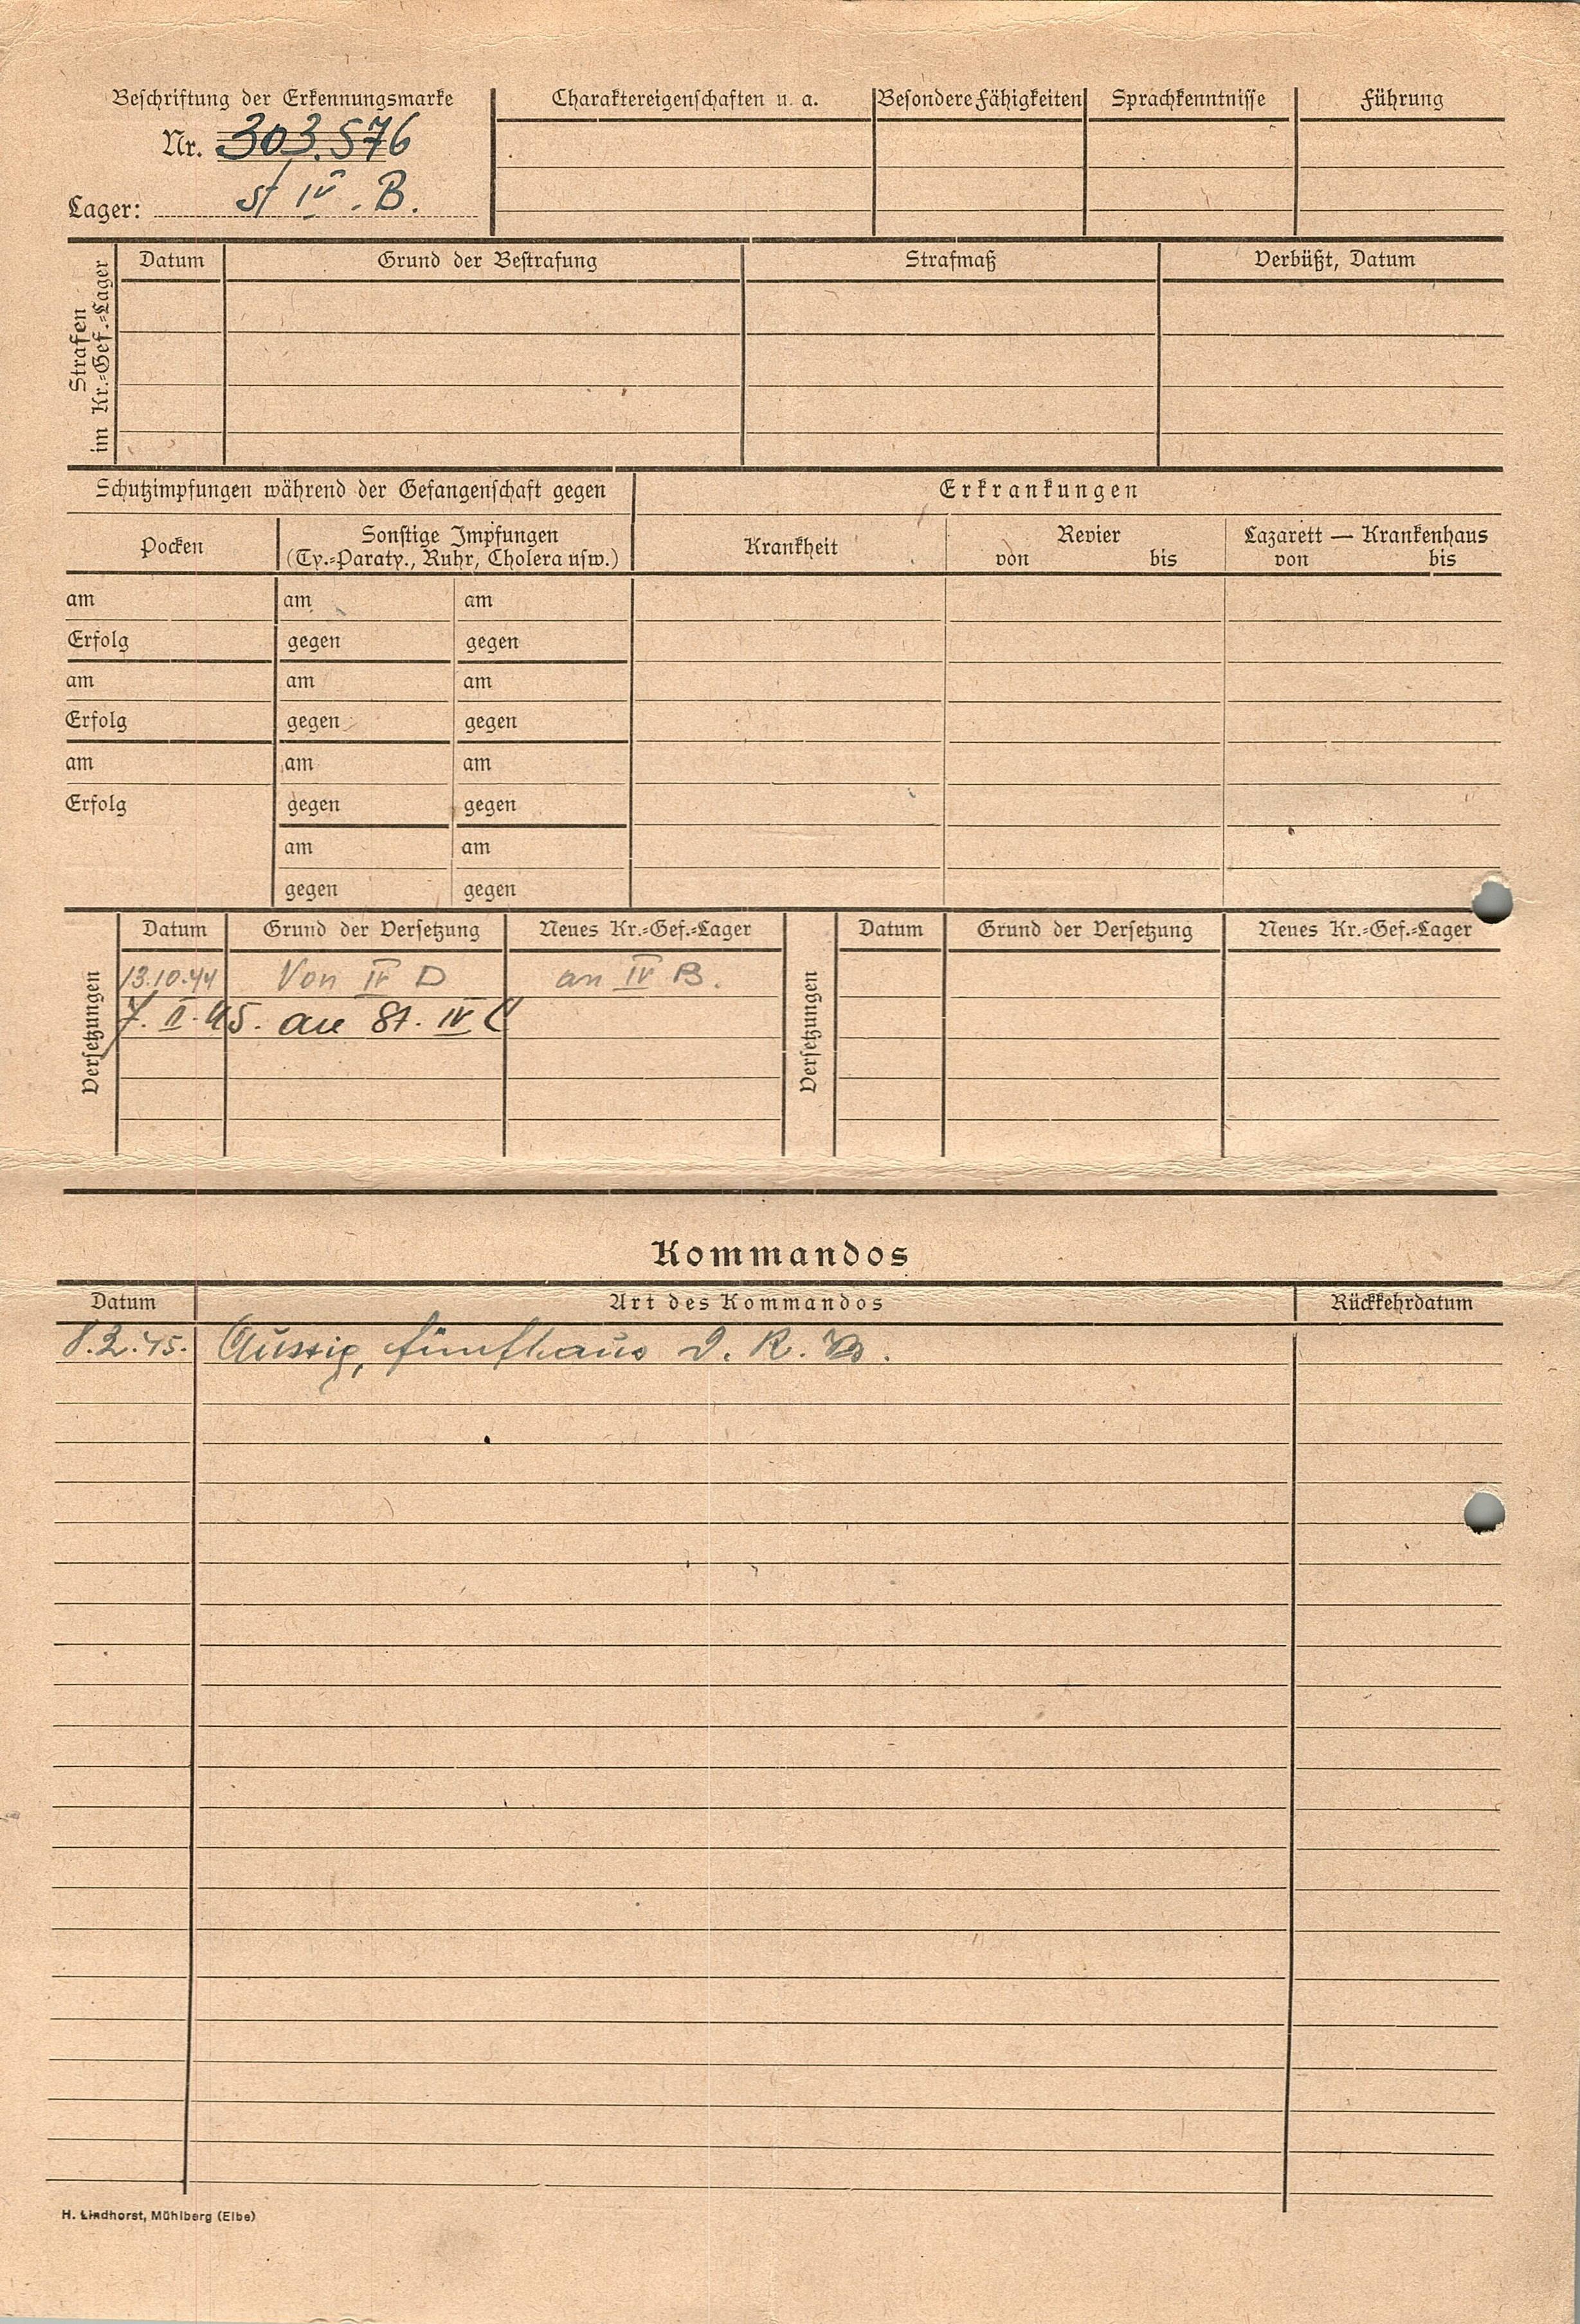 Beschriftung der Erkennungsmarke
Nr. 303.576
Lager: St IV. B.
Charaktereigenschaften u. a.
Besondere Fähigkeiten
Sprachkenntnisse
Führung
Strafen
im Kr.=Gef.=Lager
Datum
Grund der Bestrafung
Strafmaß
Verbüßt, Datum
Schutzimpfungen während der Gefangenschaft gegen
Erkrankungen
Pocken
Sonstige Impfungen
(Ty.=Paraty., Ruhr, Cholera usw.)
Krankheit
Revier
von bis
Lazarett — Krankenhaus
von bis
am am am
Erfolg gegen gegen
am am am
Erfolg gegen gegen
am am am
Erfolg gegen gegen
am am
gegen gegen
Versetzungen
Datum Grund der Versetzung Neues Kr.=Gef.=Lager
13.10.44 Von IV D an IV B.
7. II. 45. an St. IV C
Versetzungen
Datum Grund der Versetzung Neues Kr.=Gef.=Lager
Kommandos
Datum Art des Kommandos Rückkehrdatum
8.2.45. Aussig, fünfhaus D. R. B.
H. Lindhorst, Mühlberg (Elbe)